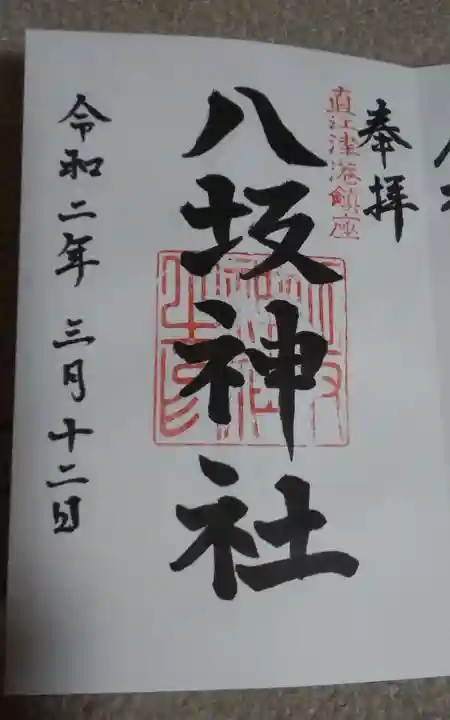 奉拝
直江津港鎮座
八坂神社
令和二年 三月十二日